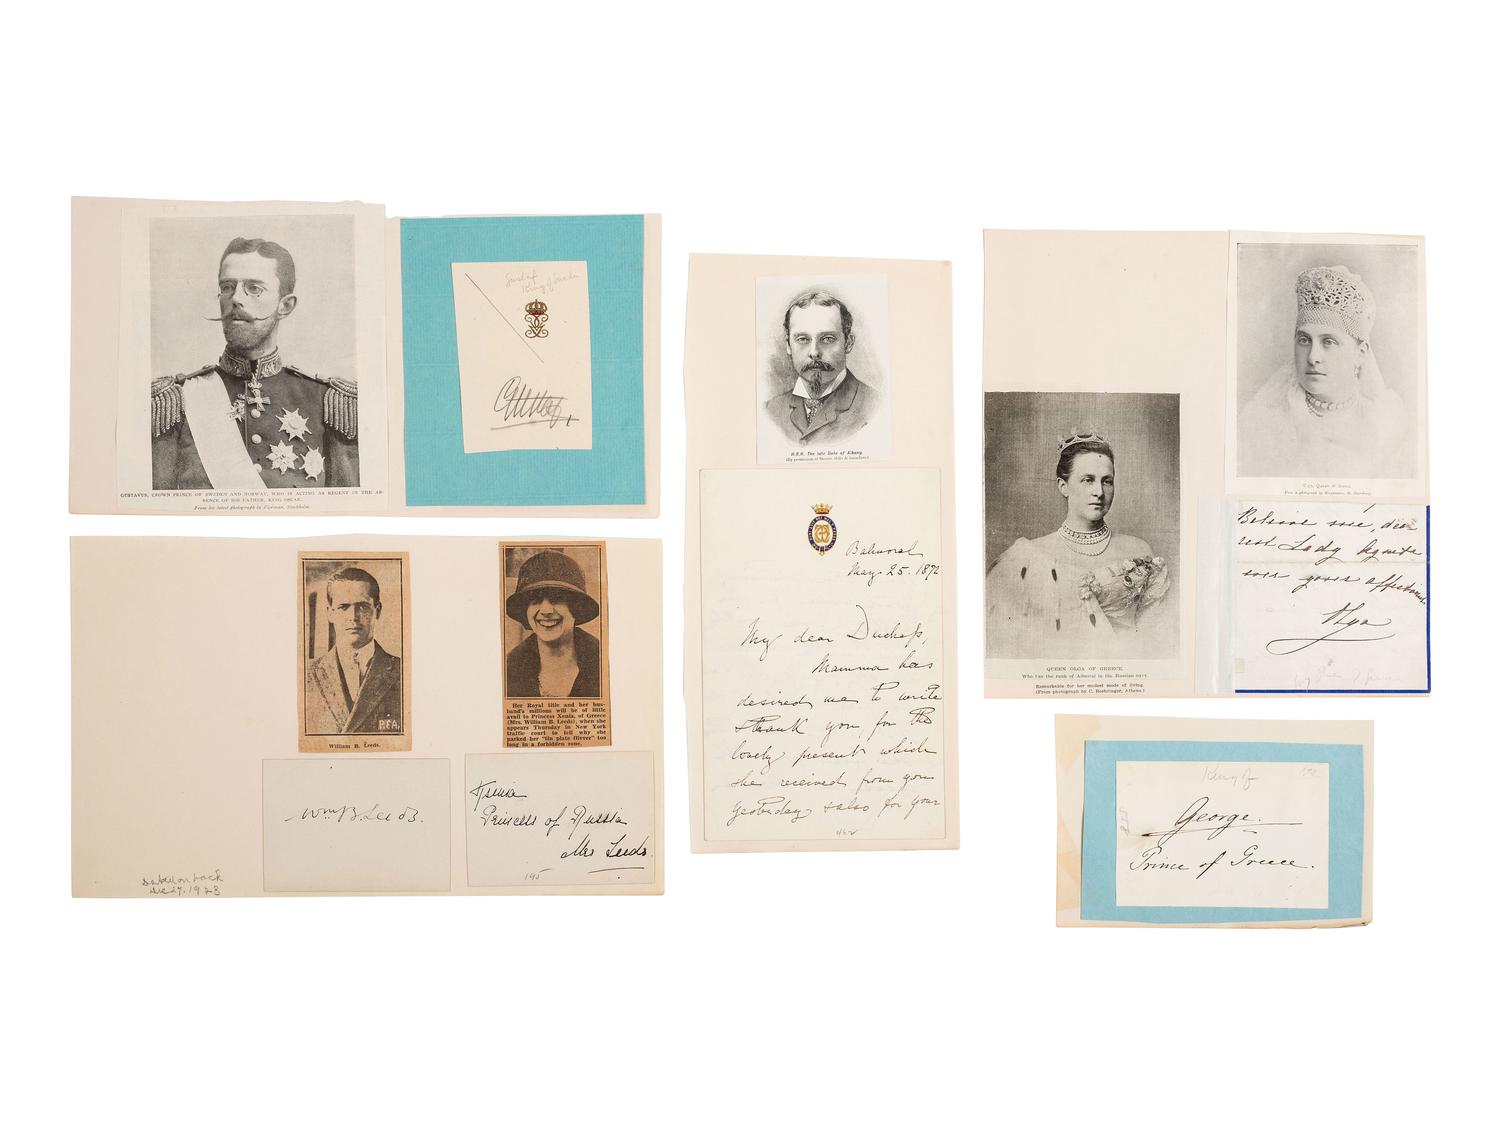 GUSTAVUS, CROWN PRINCE OF SWEDEN AND NORWAY, WHO IS ACTING AS REGENT IN THE AB-
SENCE OF HIS FATHER, KING OSCAR.
From his latest photograph by Florman, Stockholm.
Gustaf
King of Sweden
P.&A.
William B. Leeds.
Her Royal title and her hus-
band's millions will be of little
avail to Princess Xenia, of Greece
(Mrs. William B. Leeds), when she
appears Thursday in New York
traffic court to tell why she
parked her "tin plate flivver" too
long in a forbidden zone.
Wm B Leeds.
Xenia
Princess of Russia
Mrs Leeds.
195
Dated on back
Dec 27, 1923
H.R.H. The late Duke of Albany.
Balmoral
May 25. 1872
My dear Duchess,
Mamma has
desired me to write
& thank you for the
lovely present which
she received from you
yesterday & also for your
462
QUEEN OLGA OF GREECE.
Who has the rank of Admiral in the Russian navy.
Remarkable for her modest mode of living.
(From photograph by C. Boehringer, Athens.)
Olga, Queen of Greece
Believe me, dea
rest Lady
ever yours affectionate
Olga
King of
George.
Prince of Greece.